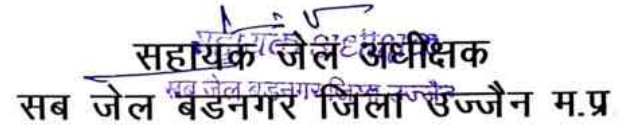 सहायक जेल अधीक्षक
सब जेल बडनगर जिला उज्जैन म.प्र